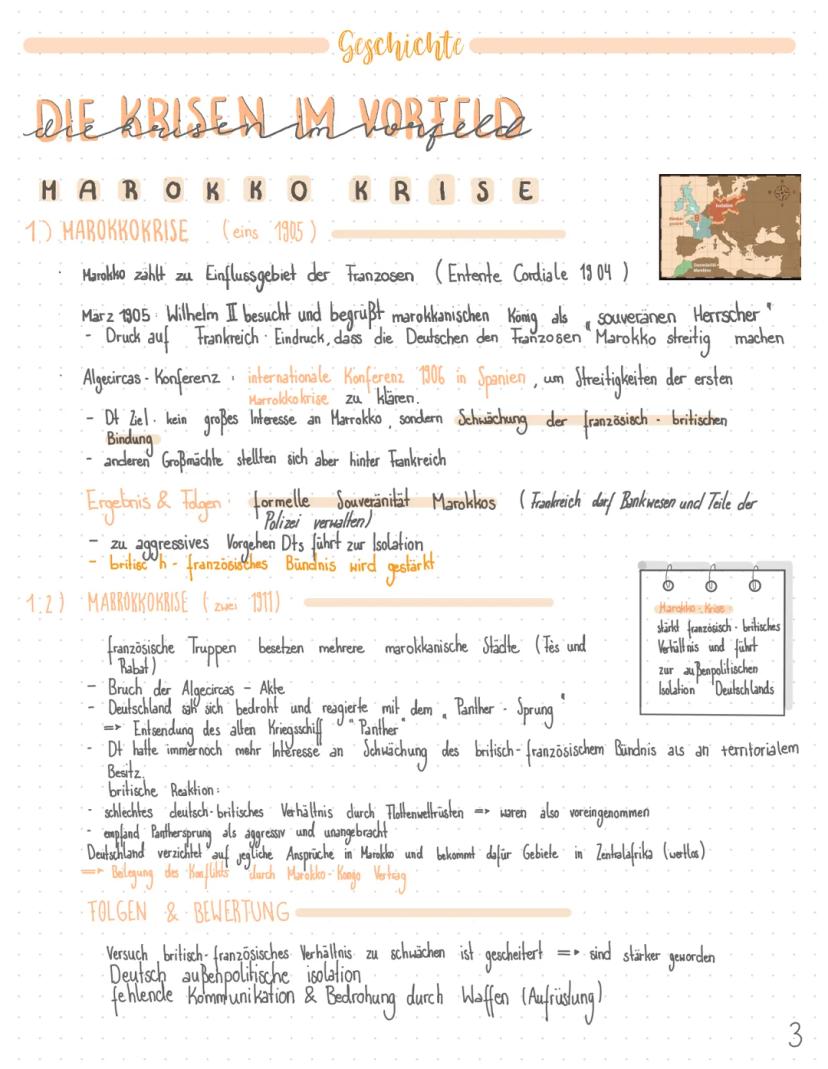 Geschichte
DIE KRISEN IM VORFELD
die krisen im vorfeld
MAROKKO KRISE
1.) MAROKKOKRISE (eins 1905)
Isolation
Marokko zählt zu Einflussgebiet der Franzosen (Entente Cordiale 1904)
März 1905: Wilhelm II besucht und begrüßt marokkanischen König als "souveränen Herrscher"
- Druck auf Frankreich · Eindruck, dass die Deutschen den Franzosen Marokko streitig machen
Algecircas - Konferenz : internationale Konferenz 1906 in Spanien, um Streitigkeiten der ersten
Marrokkokrise zu klären.
- Dt Ziel · kein großes Interesse an Marrokko, sondern Schwächung der französisch - britischen
Bindung
- anderen Großmächte stellten sich aber hinter Frankreich
Ergebnis & Folgen : formelle Souveränität Marokkos (Frankreich darf Bankwesen und Teile der
Polizei verwalten)
- zu aggressives Vorgehen Dts führt zur Isolation
- britisch - französisches Bündnis wird gestärkt
1.2) MARROKKOKRISE (zwei 1911)
Marokko - Krise
stärkt französisch - britisches
Verhältnis und führt
zur außenpolitischen
Isolation Deutschlands
französische Truppen besetzen mehrere marokkanische Städte (Fès und
Rabat)
- Bruch der Algecircas - Akte
- Deutschland sah sich bedroht und reagierte mit dem "Panther - Sprung"
=> Entsendung des alten Kriegsschiff "Panther"
- Dt hatte immernoch mehr Interesse an Schwächung des britisch-französischem Bündnis als an territorialem
Besitz.
britische Reaktion:
- schlechtes deutsch-britisches Verhältnis durch Flottenwettrüsten => waren also voreingenommen
- empfand Panthersprung als aggressiv und unangebracht
Deutschland verzichtet auf jegliche Ansprüche in Marokko und bekommt dafür Gebiete in Zentralafrika (wertlos)
=> Beilegung des Konflikts durch Marokko-Kongo Vertrag
FOLGEN & BEWERTUNG
Versuch britisch-französisches Verhältnis zu schwächen ist gescheitert => sind stärker geworden
Deutsch außenpolitische isolation
fehlende Kommunikation & Bedrohung durch Waffen (Aufrüstung)
3